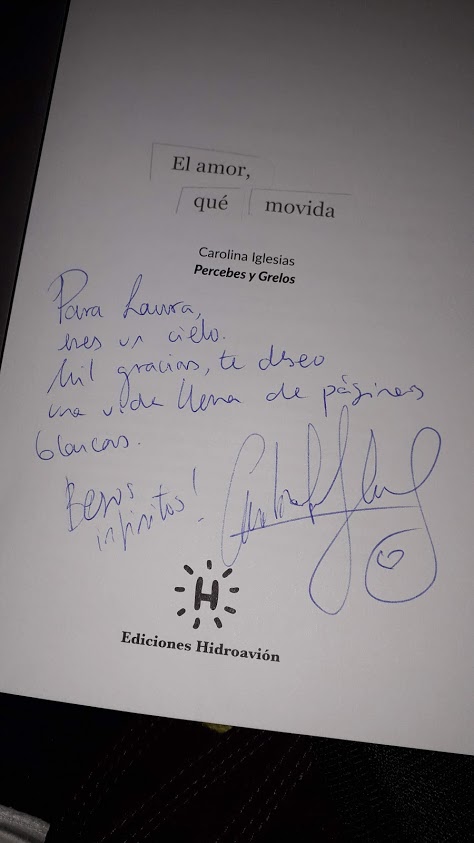 El amor,
qué movida
Carolina Iglesias
Percebes y Grelos
Para Laura,
eres un cielo.
Mil gracias, te deseo
una vida llena de páginas
blancas.
Besos
infinitos!
H
Ediciones Hidroavión